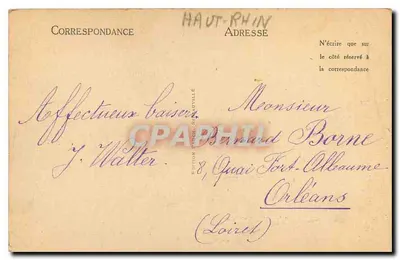 HAUT-RHIN
CORRESPONDANCE
ADRESSE
N'écrire que sur
le côté réservé à
la correspondance
Affectueux baisers
J. Walter.
Monsieur
Bernard Borne
8, Quai Fort-Alleaume
Orléans
(Loiret)
CPAPHIL